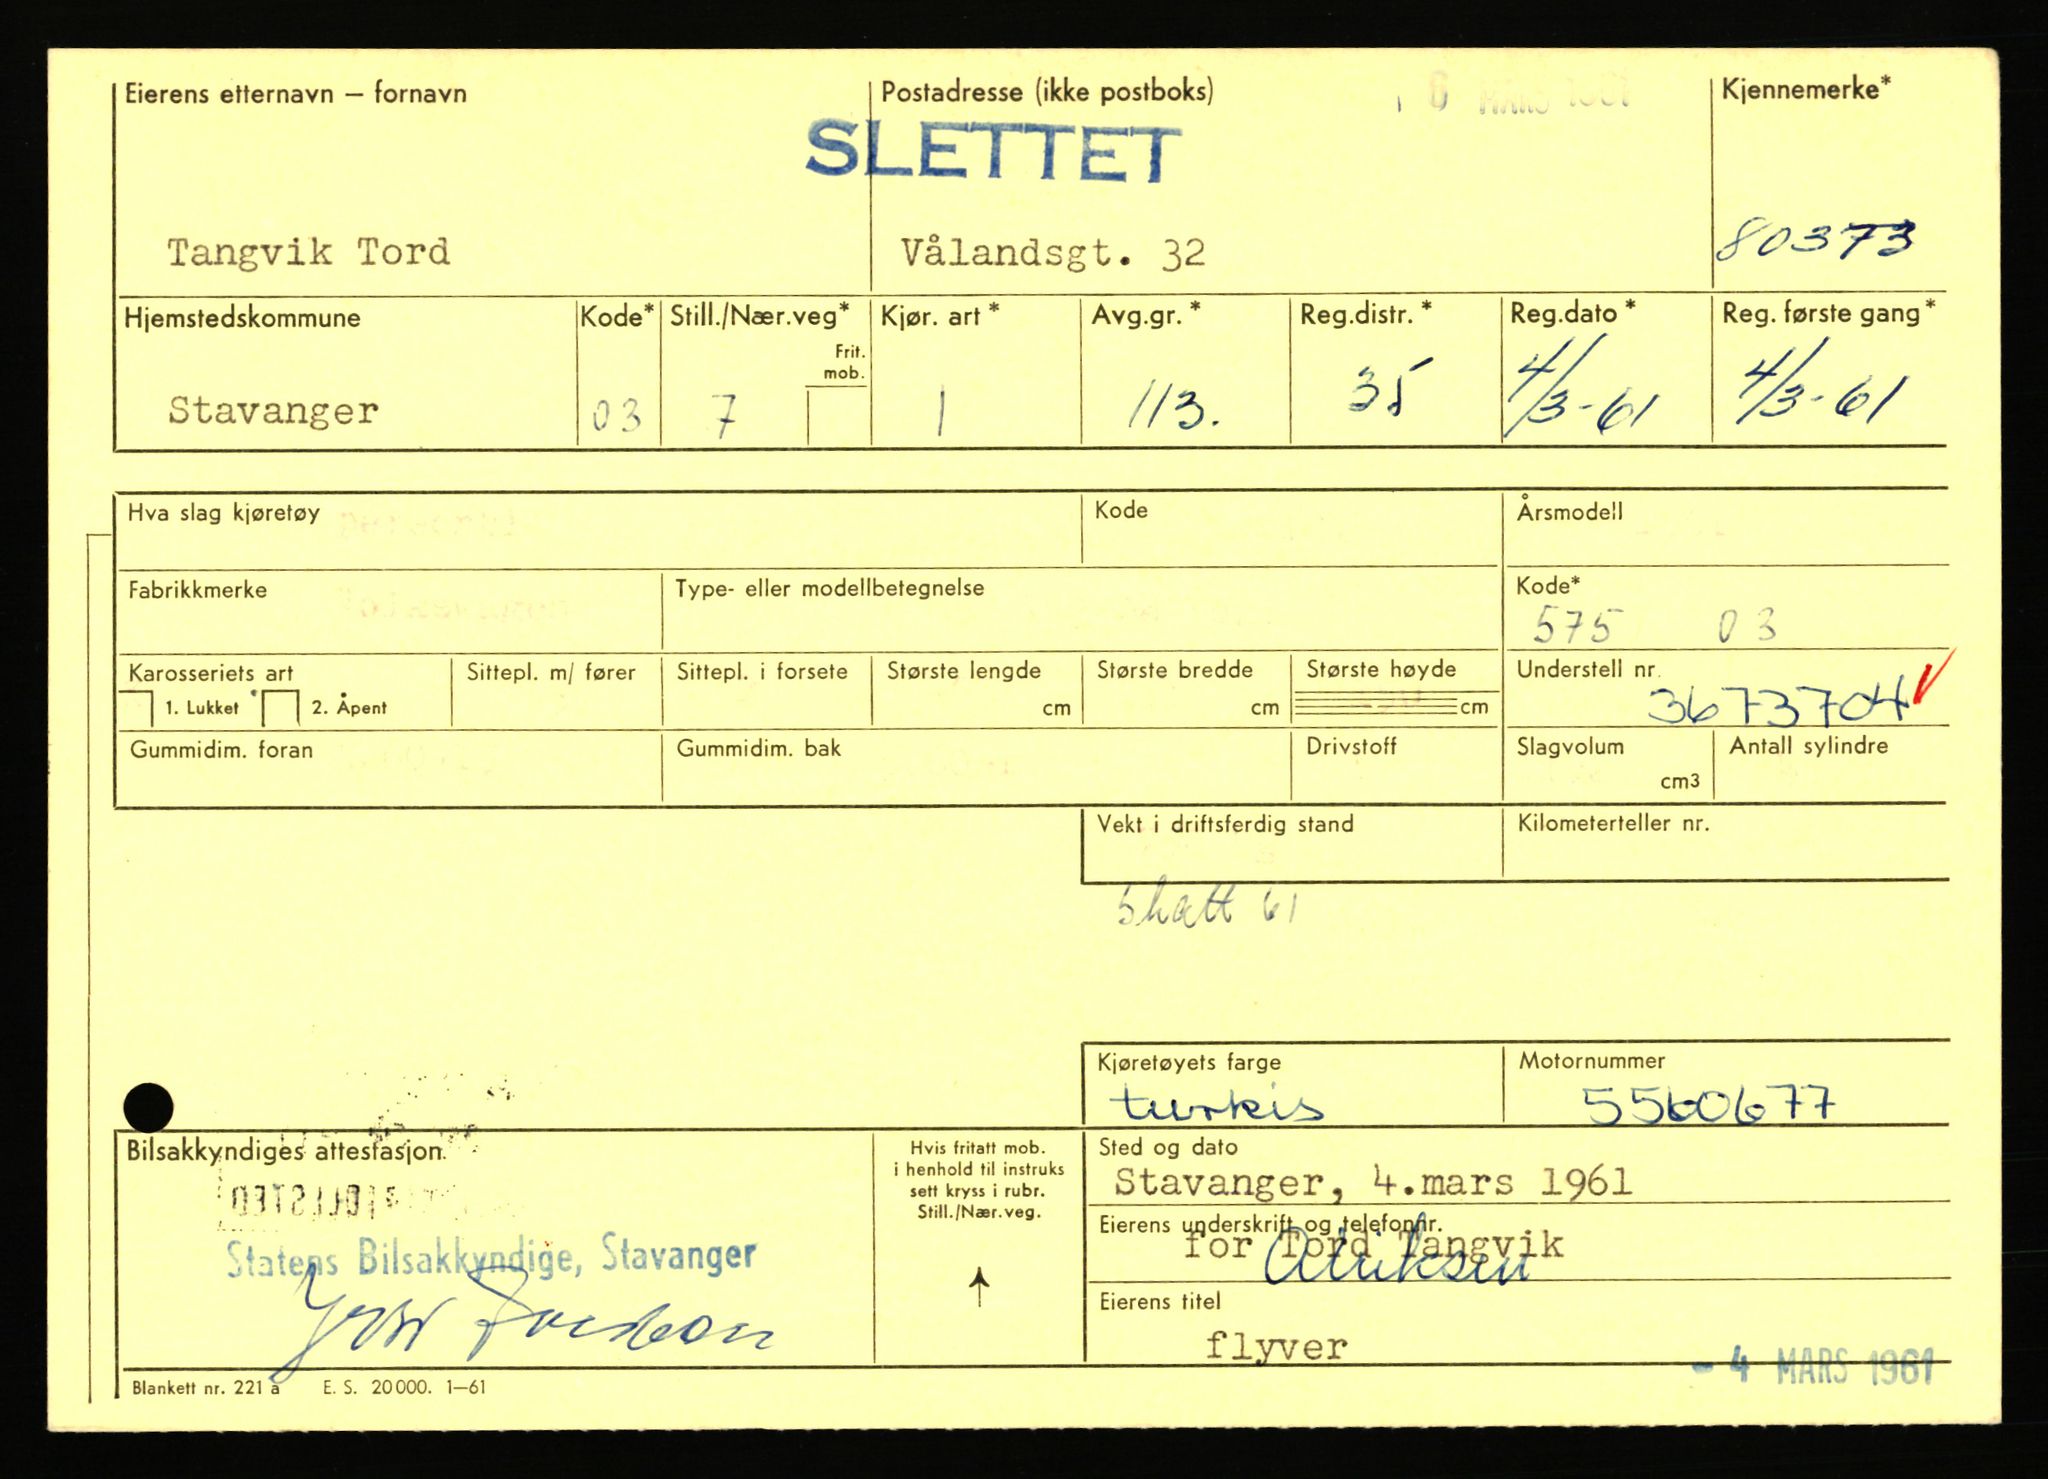 Eierens etternavn — fornavn
Postadresse (ikke postboks)
MARS 1961
Kjennemerke*
SLETTET
Tangvik Tord
Vålandsgt. 32
80373
Hjemstedskommune
Kode*
Still./Nær.veg*
Kjør. art*
Avg.gr.*
Reg.distr.*
Reg.dato*
Reg. første gang*
Frit.
mob.
Stavanger
03
7
1
113.
35
4/3-61
4/3-61
Hva slag kjøretøy
Kode
Årsmodell
Fabrikkmerke
Type- eller modellbetegnelse
Kode*
575 03
Karosseriets art
1. Lukket
2. Åpent
Sittepl. m/ fører
Sittepl. i forsete
Største lengde
cm
Største bredde
cm
Største høyde
cm
Understell nr.
3673704
Gummidim. foran
Gummidim. bak
Drivstoff
Slagvolum
cm3
Antall sylindre
Vekt i driftsferdig stand
Kilometerteller nr.
Skatt 61
Kjøretøyets farge
turkis
Motornummer
5560677
Bilsakkyndiges attestasjon.
Statens Bilsakkyndige, Stavanger
Hvis fritatt mob.
i henhold til instruks
sett kryss i rubr.
Still./Nær.veg.
Sted og dato
Stavanger, 4.mars 1961
Eierens underskrift og telefonnr.
for Tord Tangvik
Eierens titel
flyver
- 4 MARS 1961
Blankett nr. 221 a E. S. 20000. 1—61